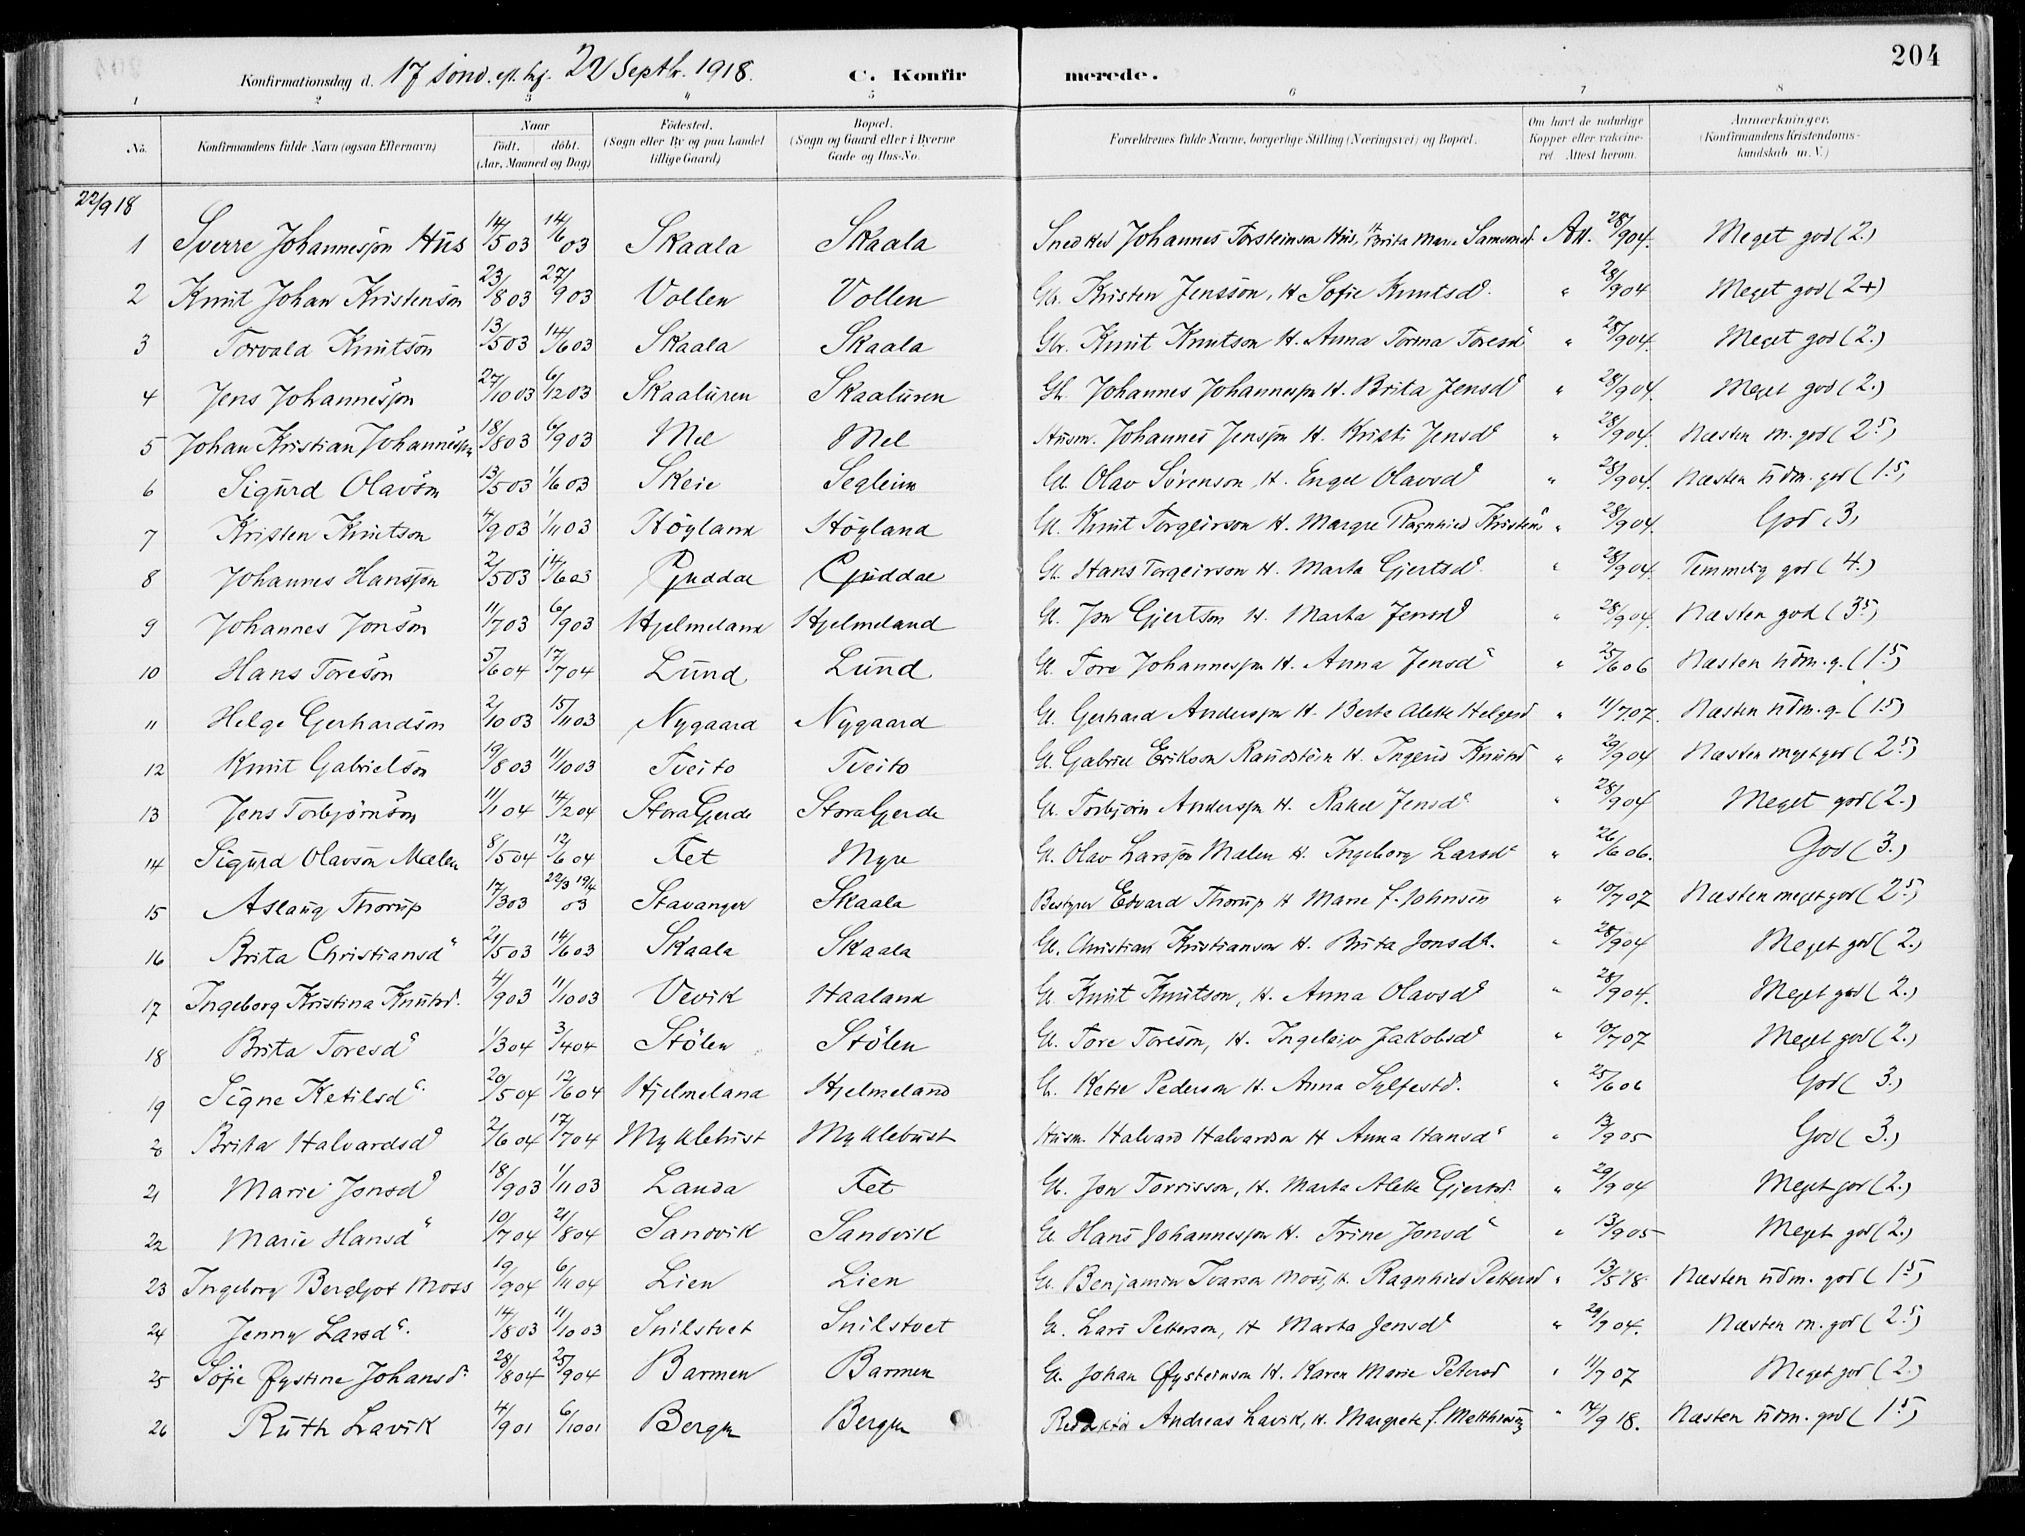 204
Konfirmationsdag d. 17 sönd. eft. trf. 22 Septbr. 1918. C. Konfirmerede.
1 2 3 4 5 6 7 8
No. Konfirmandens fulde Navn (ogsaa Efternavn) Naar födt. döbt. (Aar, Maaned og Dag) Födested. (Sogn eller By og paa Landet tillige Gaard) Bopæl. (Sogn og Gaard eller i Byerne Gade og Hus-No. Forældrenes fulde Navne, borgerlige Stilling (Næringsvei) og Bopæl. Om havt de naturlige Kopper eller vaccineret. Attest herom. Anmærkninger. (Konfirmandens Kristendomskundskab m. V.)
22/9 18
1 Sverre Johannesson Hus 14/5 03 14/6 03 Skaala Skaala Snedker Johannes Torsteinson Hus, H. Brita Marie Samsonsd. Att. 28/9 04. Meget god (2.)
2 Knut Johan Kristenson 23/8 03 27/9 03 Vollen Vollen Gb. Kristen Jensson, H. Sofie Knutsd. " 28/9 04 Meget god (2+)
3 Torvald Knutson 13/5 03 14/6 03 Skaala Skaala Gbr. Knut Knutson H. Anna Torina Toresd " 28/9 04. Meget god (2.)
4 Jens Johannesson 27/10 03 6/12 03 Skaaluren Skaaluren Gb. Johannes Johannesson H. Brita Jensd " 28/9 04. Meget god (2.)
5 Johan Kristian Johannesson 18/8 03 6/9 03 Mel Mel Husm. Johannes Jensson H. Kristi Jensd " 28/9 04. Næsten m. god (2.5)
6 Sigurd Olavson 13/5 03 1/6 03 Skeie Segleim Gb. Olav Sörenson H. Engel Olavsd " 28/9 04. Næsten udm. god (1.5)
7 Kristen Knutson 4/9 03 1/11 03 Höyland Höyland G. Knut Torgeirson H. Margre Ragnhild Kristensd " 28/9 04. God (3)
8 Johannes Hansson 2/5 03 14/6 03 Guddal Guddal G. Hans Torgeirson H. Marta Gjertsd. " 28/9 04 Temmelig god (4.)
9 Johannes Jonson 11/7 03 6/9 03 Hjelmeland Hjelmeland G. Jon Gjertson H. Marta Jensd " 28/9 04. Næsten god (3.5)
10 Hans Toreson 5/6 04 17/7 04 Lund Lund G. Tore Johannesson H. Anna Jensd " 25/6 06 Næsten udm. g. (1.5)
11 Helge Gerhardson 2/10 03 15/11 03 Nygaard Nygaard G. Gerhard Andersson H. Berte Alette Helgesd " 11/7 07. Næsten udm. g. (1.5)
12 Knut Gabrielson 19/8 03 11/10 03 Tveito Tveito G. Gabriel Erikson Raudstein H. Ingerid Knutsd " 29/9 04 Næsten meget god (2.5)
13 Jens Torbjörnson 11/1 04 14/2 04 StoraGjerde StoraGjerde G. Torbjörn Andersson H. Rakel Jensd " 28/9 04 Meget god (2.)
14 Sigurd Olavson Mælen 8/5 04 12/6 04 Tet Myre G. Olav Larsson Malen H. Ingeborg Larsd " 26/6 06. God (3.)
15 Aslaug Thorup 17/3 03 22/3 19/4 03 Stavanger Skaala Bestyrer Edvard Thorup H Marie f. Johnsen " 10/7 07 Næsten meget god (2.5)
16 Brita Christiansd 21/5 03 14/6 03 Skaala Skaala Gb. Christian Kristianson H. Brita Jonsd. " 28/9 04 Meget god (2.)
17 Ingeborg Kristina Knutsd. 4/9 03 11/10 03 Vevik Haaland G. Knut Knutson, H. Anna Olavsd " 28/9 04. Meget god (2.)
18 Brita Toresd 1/3 04 3/4 04 Stölen Stölen G. Tore Toreson, H. Ingeleiv Jakobsd " 10/7 07 Meget god (2.)
19 Signe Ketilsd. 20/5 04 12/6 04 Hjelmeland Hjelmeland G. Ketil Pederson H. Anna Sylfestd. " 25/6 06 God (3.)
20 Brita Halvardsd 2/6 04 17/7 04 Myklebust Myklebust Husm. Halvard Halvardson H Anna Hansd " 13/9 05 God (3.)
21 Marie Jonsd 18/9 03 1/11 03 Landa Tet Gb. Jon Torrisson, H. Marta Alette Gjertsd. " 29/9 04 Meget god (2.)
22 Marie Hansd 10/7 04 21/8 04 Sandvik Sandvik G Hans Johannesson H. Trine Jonsd " 13/9 05 Meget god (2.)
23 Ingeborg Bergljot Moss 19/9 04 6/11 04 Lien Lien G. Benjamin Ivarson Moss, H. Ragnhild Pettersd " 13/5 18. Næsten udm. god (1.5)
24 Jenny Larsd. 14/8 03 11/10 03 Snilstvet Snilstvet G. Lars Petterson, H Marta Jensd " 29/9 04. Næsten m. god (2.5)
25 Sofie Öystine Johansd. 28/8 04 25/9 04 Barmen Barmen G. Johan Öysteinson H. Karen Marie Petersd " 11/7 07 Meget god (2.)
26 Ruth Lavik 4/9 01 6/10 01 Bergen Bergen Redaktör Andreas Lavik, H. Margrete f. Matthiesen " 17/9 18. Næsten udm. god (1.5)